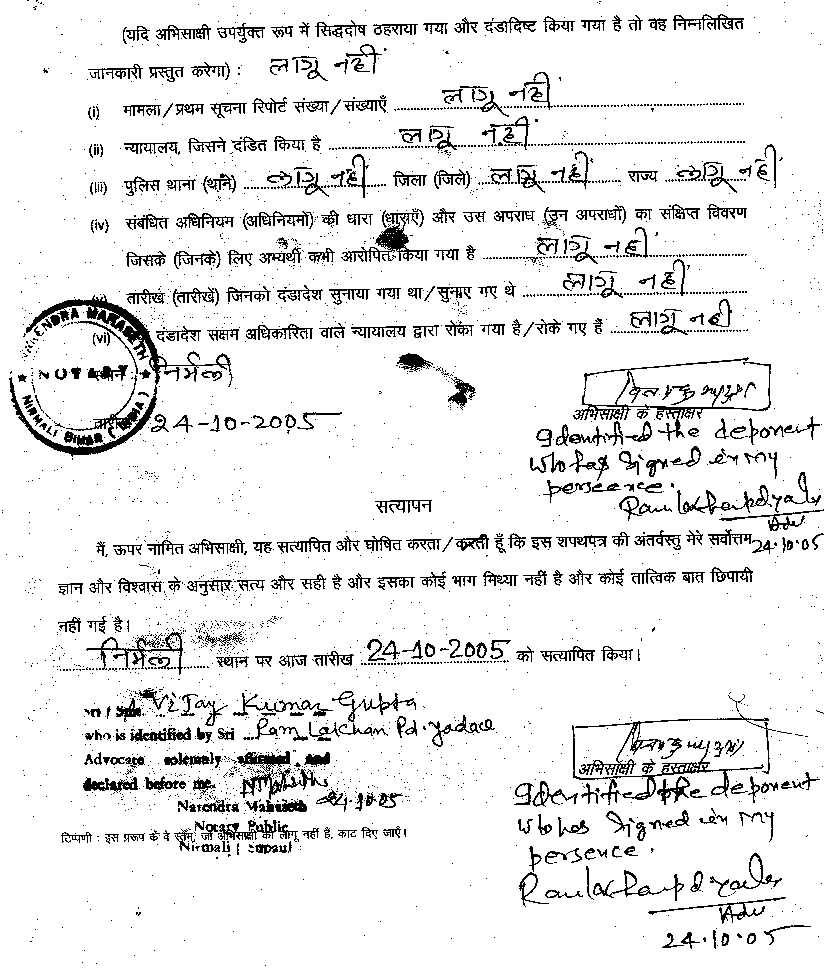 (यदि अभिसाक्षी उपर्युक्त रूप में सिद्धदोष ठहराया गया और दंडादिष्ट किया गया है तो वह निम्नलिखित
जानकारी प्रस्तुत करेगा) : लागू नहीं
(i) मामला/प्रथम सूचना रिपोर्ट संख्या/संख्याएँ लागू नहीं
(ii) न्यायालय, जिसने दंडित किया है लागू नहीं
(iii) पुलिस थाना (थाने) लागू नहीं जिला (जिले) लागू नहीं राज्य लागू नहीं
(iv) संबंधित अधिनियम (अधिनियमों) की धारा (धाराएँ) और उस अपराध (उन अपराधों) का संक्षिप्त विवरण
जिसके (जिनके) लिए अभ्यर्थी कभी आरोपित किया गया है लागू नहीं
तारीख (तारीखें) जिनको दंडादेश सुनाया गया था/सुनाए गए थे लागू नहीं
(vi) दंडादेश सक्षम अधिकारिता वाले न्यायालय द्वारा रोका गया है/रोके गए हैं लागू नहीं
NARENDRA MAHASETH
NOTARY
NIRMALI BIHAR (INDIA)
स्थान: निर्मली
तारीख 24-10-2005
अभिसाक्षी के हस्ताक्षर
Identified the deponent
who has signed in my
persence.
Ramlakhan pd yadav
Adv
24.10.05
सत्यापन
मैं, ऊपर नामित अभिसाक्षी, यह सत्यापित और घोषित करता/करती हूँ कि इस शपथपत्र की अंतर्वस्तु मेरे सर्वोत्तम
ज्ञान और विश्वास के अनुसार सत्य और सही है और इसका कोई भाग मिथ्या नहीं है और कोई तात्विक बात छिपायी
नहीं गई है।
निर्मली स्थान पर आज तारीख 24-10-2005 को सत्यापित किया।
Sri / Smt. Vijay Kumar Gupta
who is identified by Sri Ram Lakhan Pd. Yadava
Advocate solemnly affirmed and
declared before me.
24.10.05
Narendra Mahaseth
Notary Public
टिप्पणी : इस प्ररूप के वे स्तंभ, जो अभिसाक्षी को लागू नहीं हैं, काट दिए जाएँ।
Nirmali (Supaul
अभिसाक्षी के हस्ताक्षर
Identified the deponent
who has signed in my
persence.
Ramlakhan pd yadav
Adv
24.10.05